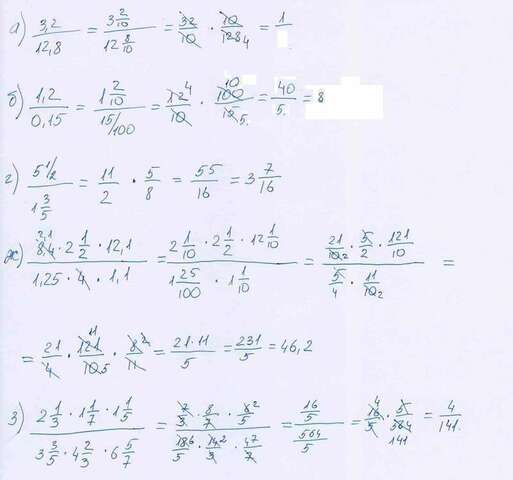 а) 3,2/12,8 = 3 2/10 / 12 8/10 = 32/10 · 10/128 4 = 1/
б) 1,2/0,15 = 1 2/10 / 15/100 = 12 4/10 · 100 10/15 5. = 40/5. = 8
г) 5 1/2 / 1 3/5 = 11/2 · 5/8 = 55/16 = 3 7/16
ж) 8,4 2,1 · 2 1/2 · 12,1 / 1,25 · 4 · 1,1 = 2 1/10 · 2 1/2 · 12 1/10 / 1 25/100 · 1 1/10 = 21/10,2 · 5/2 · 121/10 / 5/4 · 11/10 2 =
= 21/4 · 121 11/10 5 · 8 2/11 = 21 · 11/5 = 231/5 = 46,2
з) 2 1/3 · 1 1/7 · 1 1/5 / 3 3/5 · 4 2/3 · 6 5/7 = 7/3 · 8/7 · 6 2/5 / 18 6/5 · 14 2/3 · 47/7 = 16/5 / 564/5 = 16 4/5 · 5/564 141 = 4/141.